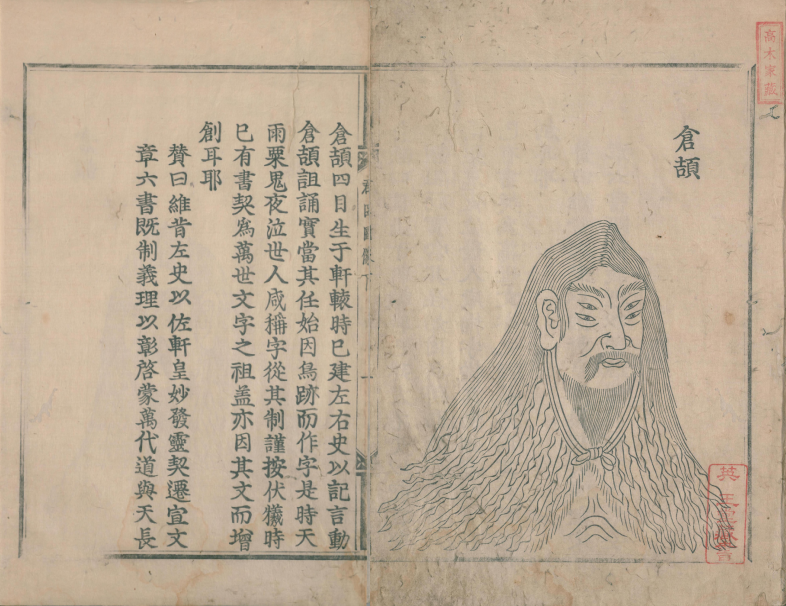 倉頡
高木家藏
倉頡四目生于軒轅時已建左右史以記言動
倉頡詛誦實當其任始因鳥跡而作字是時天
雨粟鬼夜泣世人咸稱字從其制謹按伏犧時
已有書契爲萬世文字之祖盖亦因其文而增
創耳耶
賛曰維昔左史以佐軒皇妙發靈契遷宣文
章六書既制義理以彰啓蒙萬代道與天長